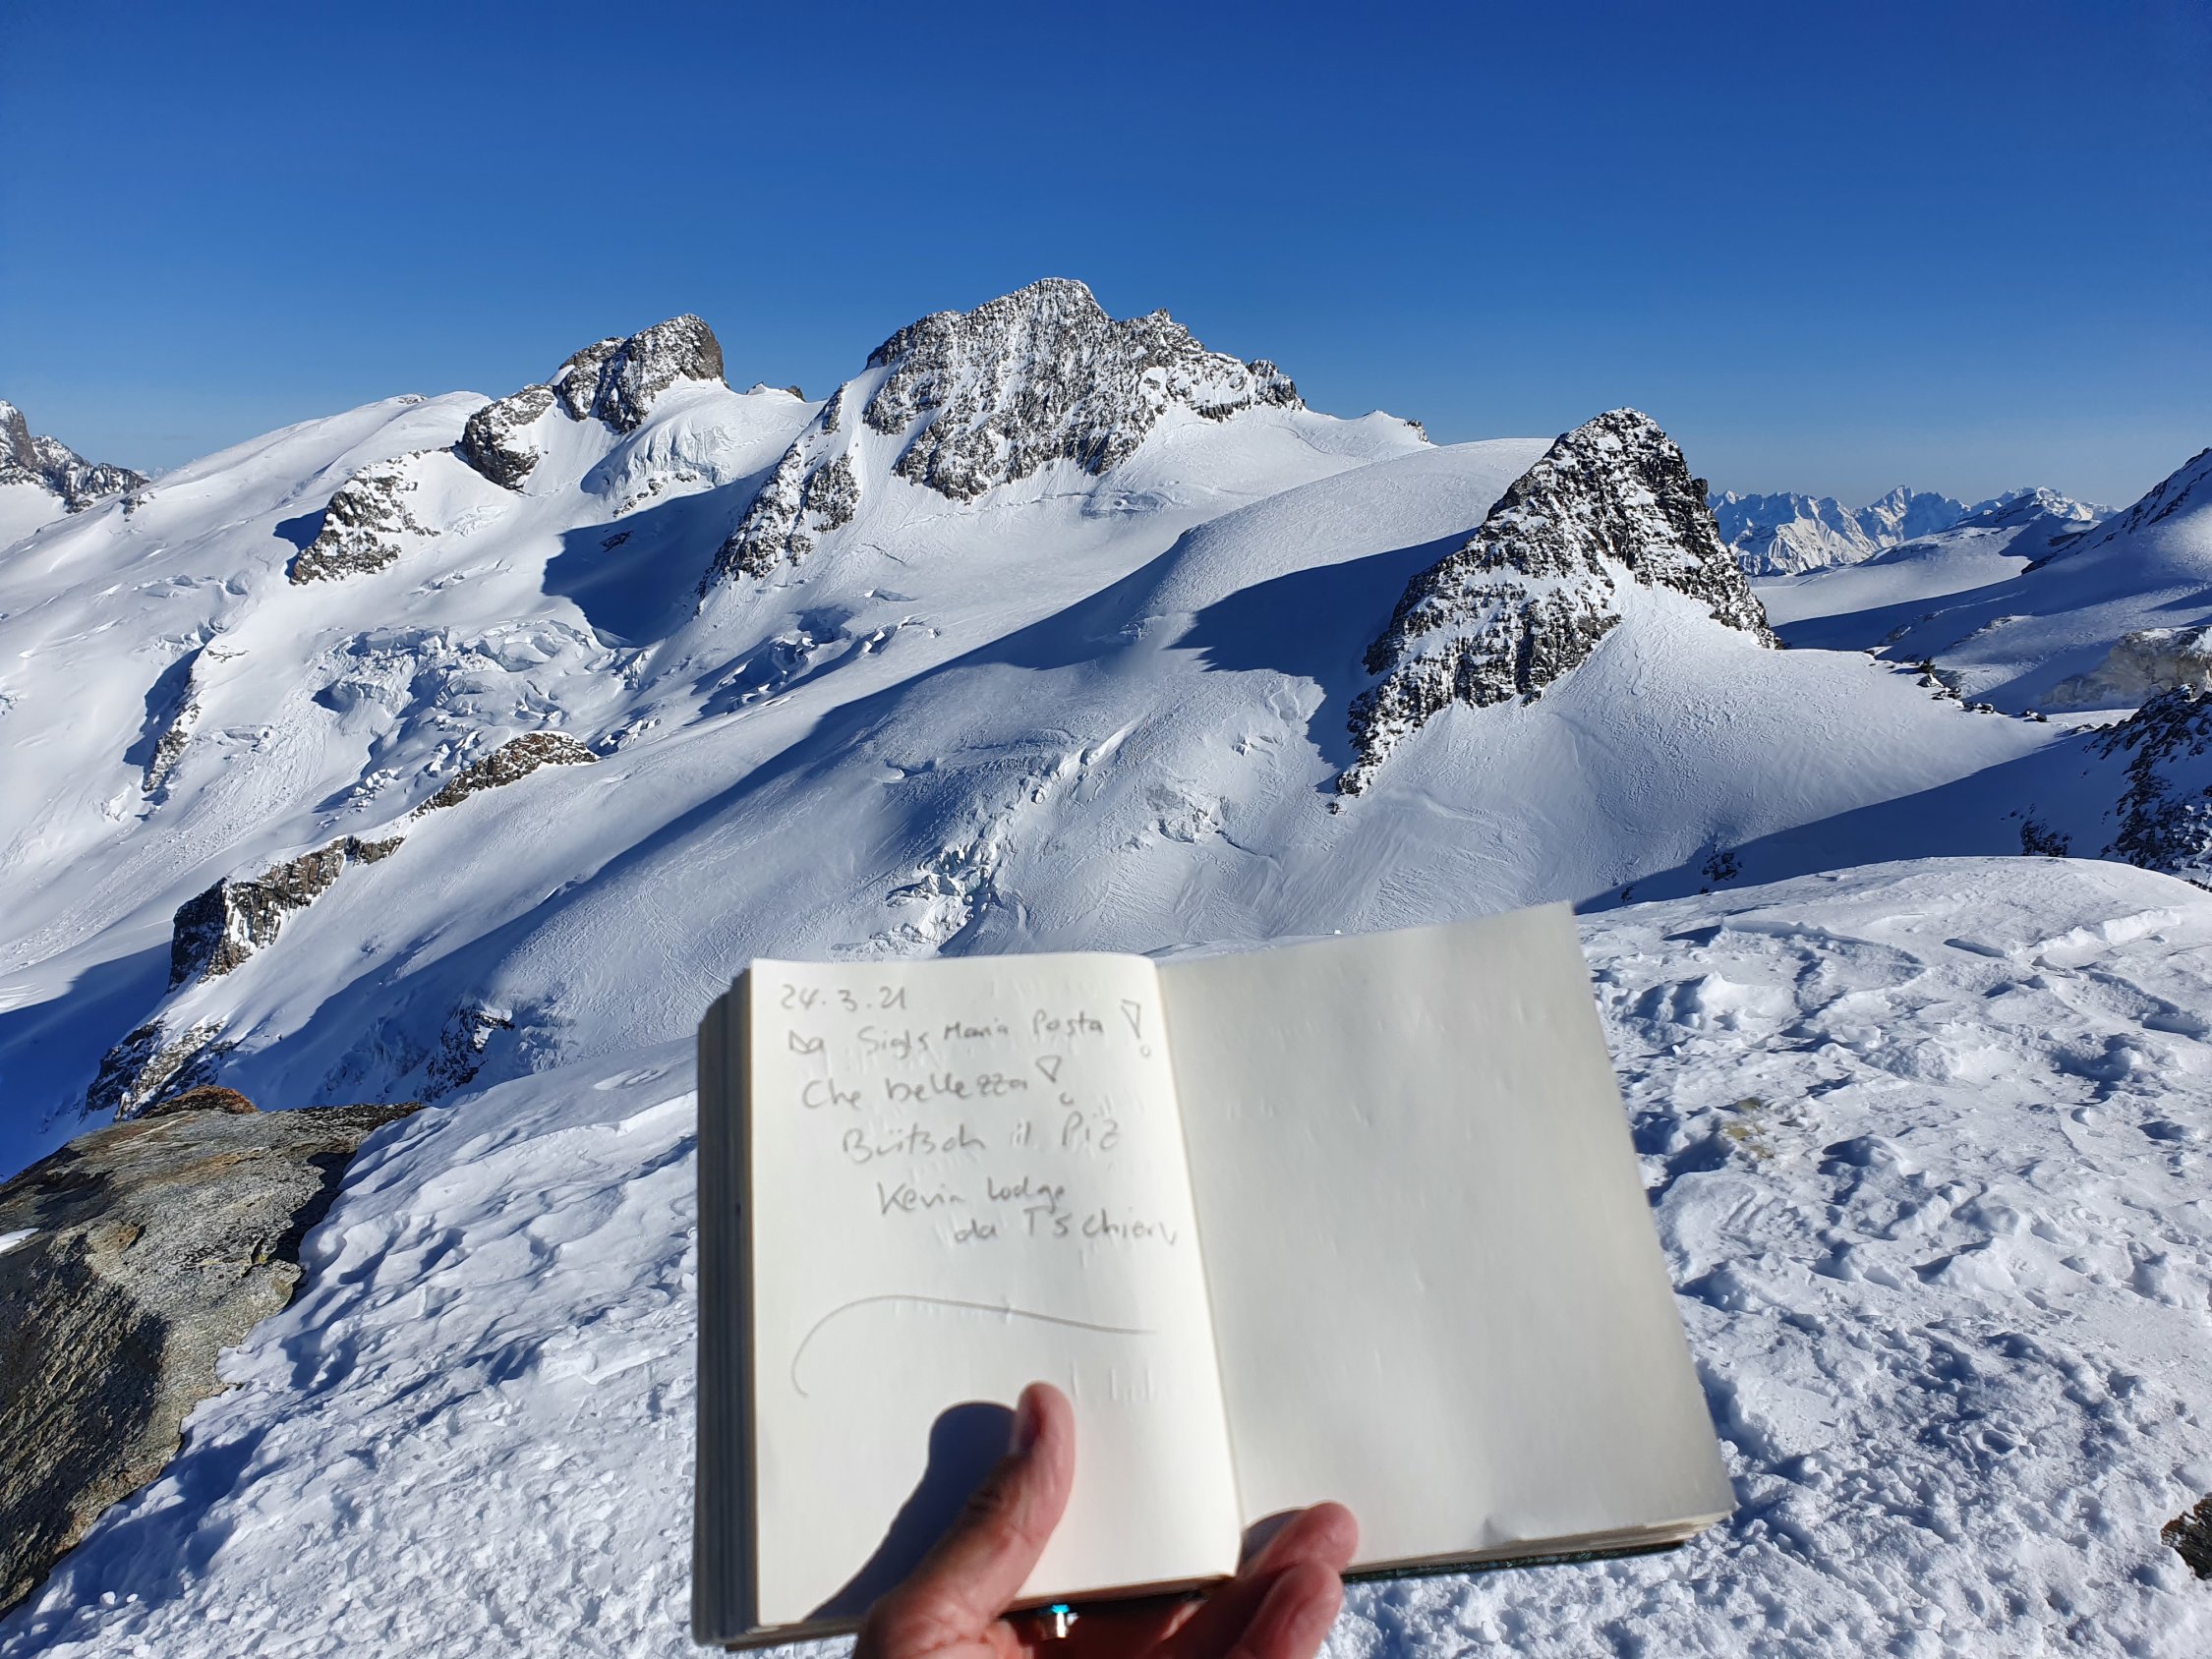 24.3.21
Da Sigls Maria Posta!
Che bellezza!
Bütsch il Piz
Kevin Lodge
da Tschierv